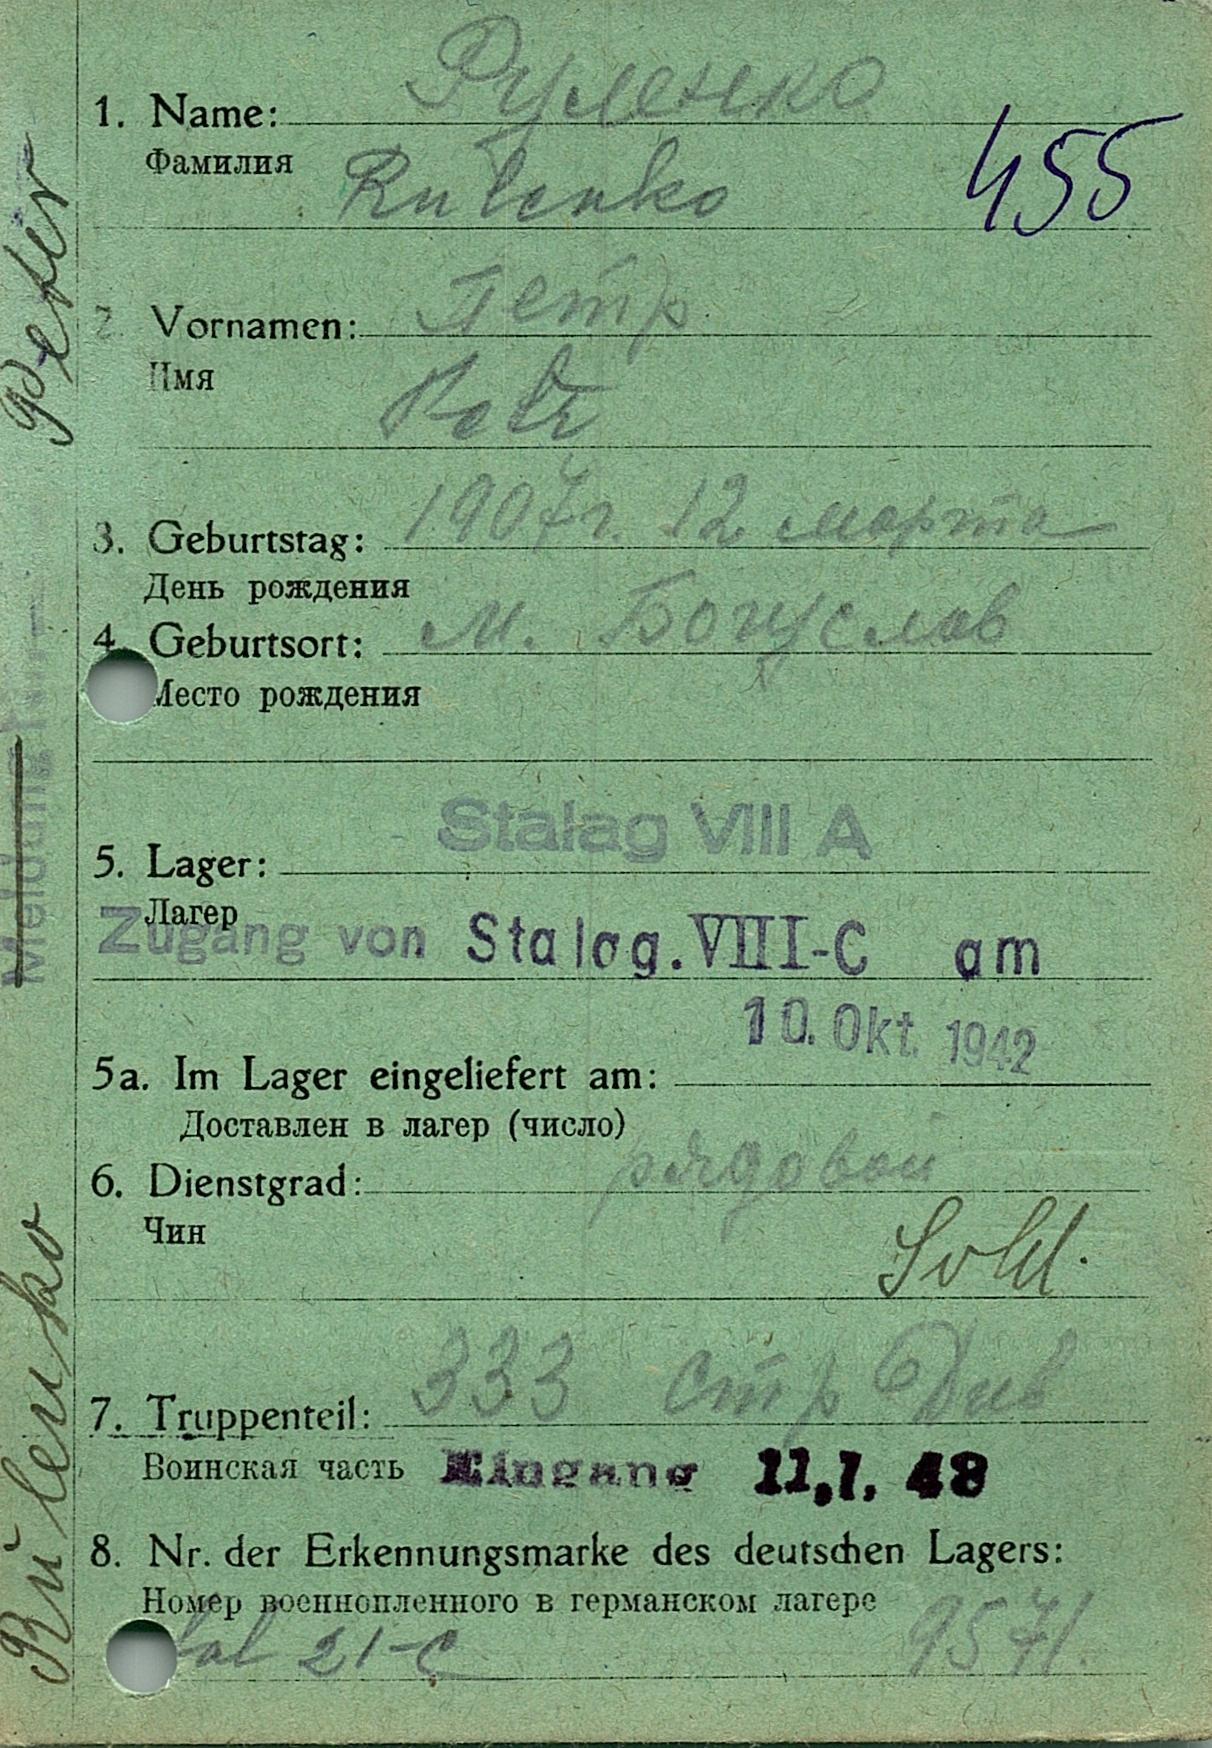 Руленко
1. Name:
Фамилия
Rulenko
455
Петр
2. Vornamen:
Имя
Petr
1907г. 12 марта
3. Geburtstag:
День рождения
м. Богуслав
4. Geburtsort:
Место рождения
Stalag VIII A
5. Lager:
Лагер
Zugang von Stalag. VIII-C am
10. Okt. 1942
5a. Im Lager eingeliefert am:
Доставлен в лагер (число)
рядовой
6. Dienstgrad:
Чин
Sold.
333 стр Див
7. Truppenteil:
Воинская часть
Eingang 11.1. 43
8. Nr. der Erkennungsmarke des deutschen Lagers:
Номер военнопленного в германском лагере
21-C 9571.
Rulenko Peter
Meldung